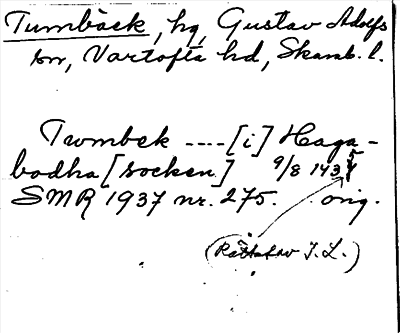 Tumbäck, hg, Gustav Adolfs
sn, Vartofta hd, Skarab. l.
Twmbek ---- [i] Haga-
bodha [socken] 9/8 1435
SMR 1937 nr. 275. orig.
(Rättat av I.L.)